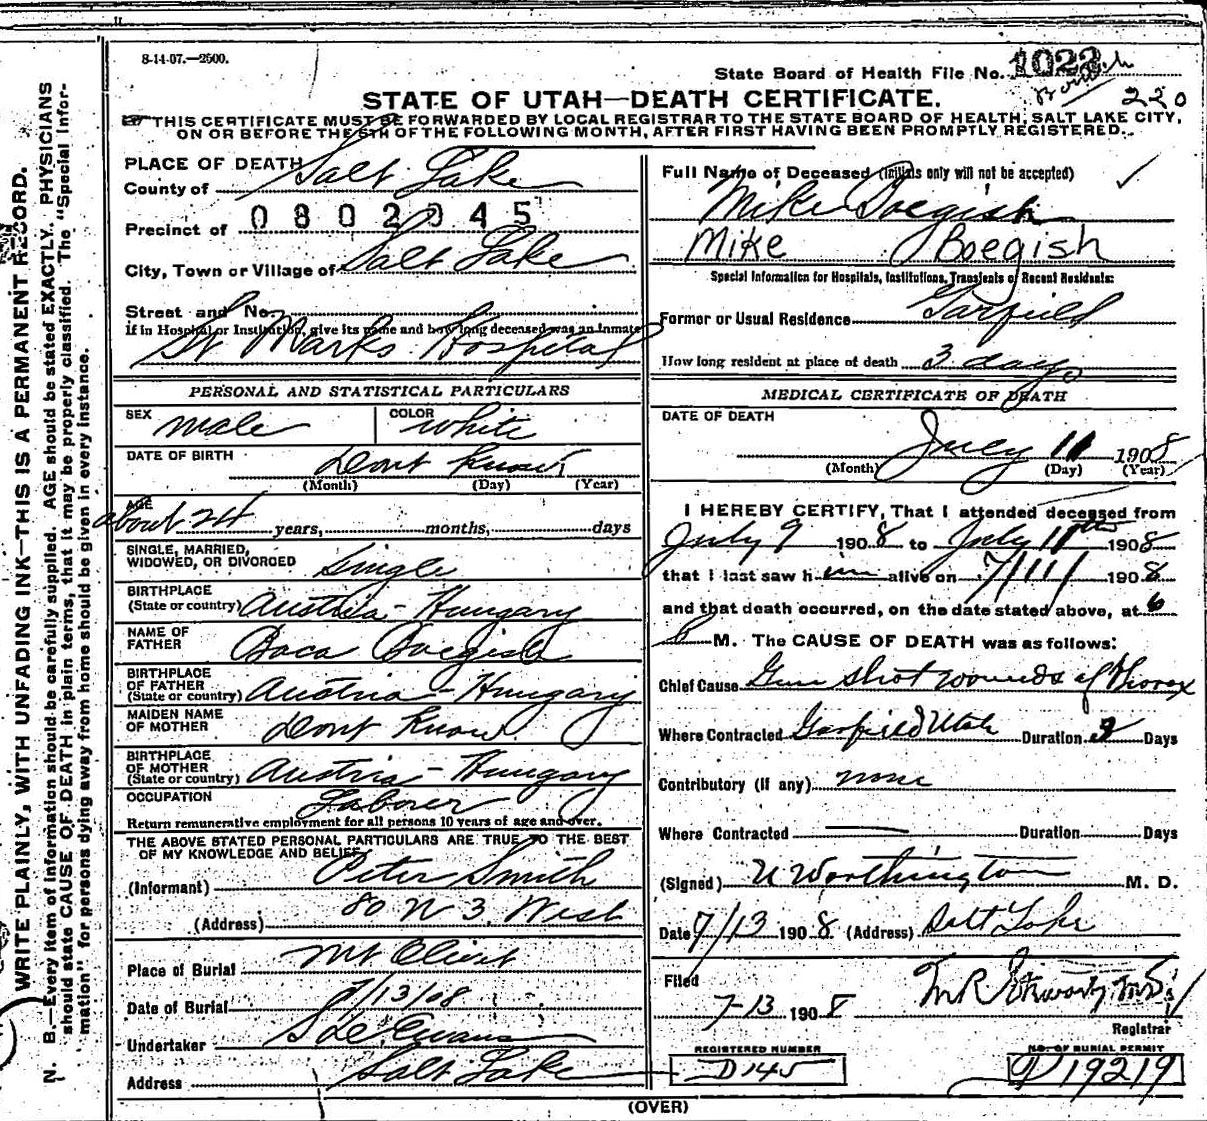 8-14-07.—2500.
State Board of Health File No. 1023
220
STATE OF UTAH—DEATH CERTIFICATE.
THIS CERTIFICATE MUST BE FORWARDED BY LOCAL REGISTRAR TO THE STATE BOARD OF HEALTH, SALT LAKE CITY,
ON OR BEFORE THE 5TH OF THE FOLLOWING MONTH, AFTER FIRST HAVING BEEN PROMPTLY REGISTERED.
WRITE PLAINLY, WITH UNFADING INK—THIS IS A PERMANENT RECORD.
N. B.—Every item of information should be carefully supplied. AGE should be stated EXACTLY. PHYSICIANS
should state CAUSE OF DEATH in plain terms, that it may be properly classified. The "Special Infor-
mation" for persons dying away from home should be given in every instance.
PLACE OF DEATH
County of Salt Lake
0802045
Precinct of
City, Town or Village of Salt Lake
Street and No.
If in Hospital or Institution, give its name and how long deceased was an inmate
St Marks Hospital
PERSONAL AND STATISTICAL PARTICULARS
SEX male COLOR white
DATE OF BIRTH Dont Know
(Month) (Day) (Year)
AGE about 24 years, months, days
SINGLE, MARRIED,
WIDOWED, OR DIVORCED Single
BIRTHPLACE
(State or country) Austria-Hungary
NAME OF
FATHER Boca Boegish
BIRTHPLACE
OF FATHER
(State or country) Austria-Hungary
MAIDEN NAME
OF MOTHER Dont Know
BIRTHPLACE
OF MOTHER
(State or country) Austria-Hungary
OCCUPATION Laborer
Return remunerative employment for all persons 10 years of age and over.
THE ABOVE STATED PERSONAL PARTICULARS ARE TRUE TO THE BEST
OF MY KNOWLEDGE AND BELIEF
(Informant) Peter Smith
(Address) 80 N 3 West
Place of Burial Mt Olivet
Date of Burial 7/13/08
Undertaker S D Evans
Address Salt Lake
Full Name of Deceased (initials only will not be accepted)
Mike Boegish
Mike Boegish
Special Information for Hospitals, Institutions, Transients or Recent Residents:
Former or Usual Residence Garfield
How long resident at place of death 3 days
MEDICAL CERTIFICATE OF DEATH
DATE OF DEATH
July 11 1908
(Month) (Day) (Year)
I HEREBY CERTIFY, That I attended deceased from
July 9 1908 to July 11th 1908
that I last saw him alive on 7/11/ 1908
and that death occurred, on the date stated above, at 6
P M. The CAUSE OF DEATH was as follows:
Chief Cause Gun shot wounds of Thorax
Where Contracted Garfield Utah Duration 2 Days
Contributory (if any) none
Where Contracted Duration Days
(Signed) U Worthington M. D.
Date 7/13 1908 (Address) Salt Lake
Filed
7-13 1908
Registrar
REGISTERED NUMBER
D145
NO. OF BURIAL PERMIT
D19219
(OVER)